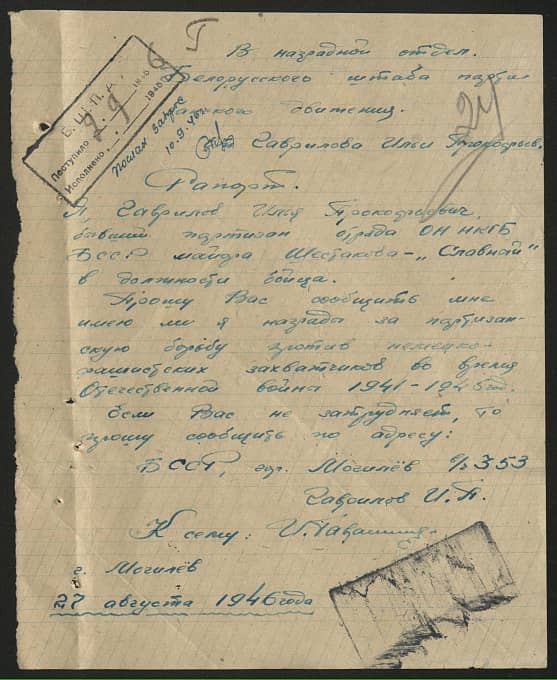 Б. Ш. П. Д.
Поступило 2 9 1946
Исполнено
послан запрос
10.9.46г.
В наградной отдел
Белорусского штаба парти
занского движения.
Гаврилова Ильи Прокофьев.
24
Рапорт.
Я, Гаврилов Илья Прокофьевич,
бывший партизан отряда ОН НКГБ
БССР майора Шестакова – „Славный"
в должности бойца.
Прошу Вас сообщить мне
имею ли я награды за партизан-
скую борьбу против немецко-
фашистских захватчиков во время
Отечественной война 1941-1945год.
Если Вас не затрудняет, то
прошу сообщить по адресу:
БССР, гор. Могилёв 353
Гаврилов И. П.
К сему:
г. Могилёв
27 августа 1946 года